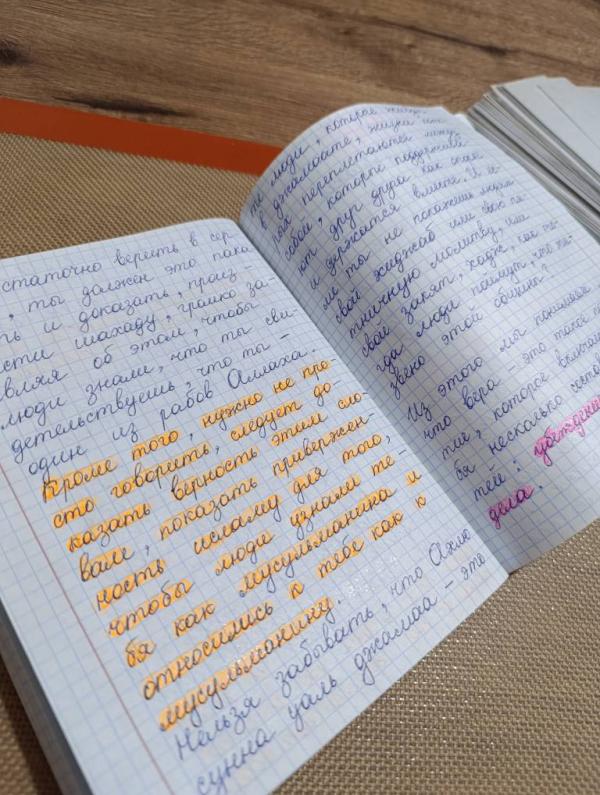 статочно верить в сер
, ты должен это пока
ть и доказать, произ-
ести шахаду, громко за-
вляя об этом, чтобы
люди знали, что ты сви-
детельствуешь, что ты -
один из рабов Аллаха.
Кроме того, нужно не про-
сто говорить, следует до-
казать верность этим сло-
вам, показать привержен-
ность исламу для того,
чтобы люди узнали те-
бя как мусульманина и
относились к тебе как к
мусульманину.
Нельзя забывать, что Ахлю
сунна уаль джамаа - это
те люди, которые
в джамаате, жизни
рых переплетаются между
собой, которые поддержива
ют друг друга как
и держатся вместе. И
ты не покажешь людям
свой хиджаб или свою
молитву, или
свой закят, хадж, как
да люди поймут, что ты
звено этой общины?
Из этого мы понимаем,
что вера - это такое
тие, которое включает
бя несколько
тей: убеждения
дела.